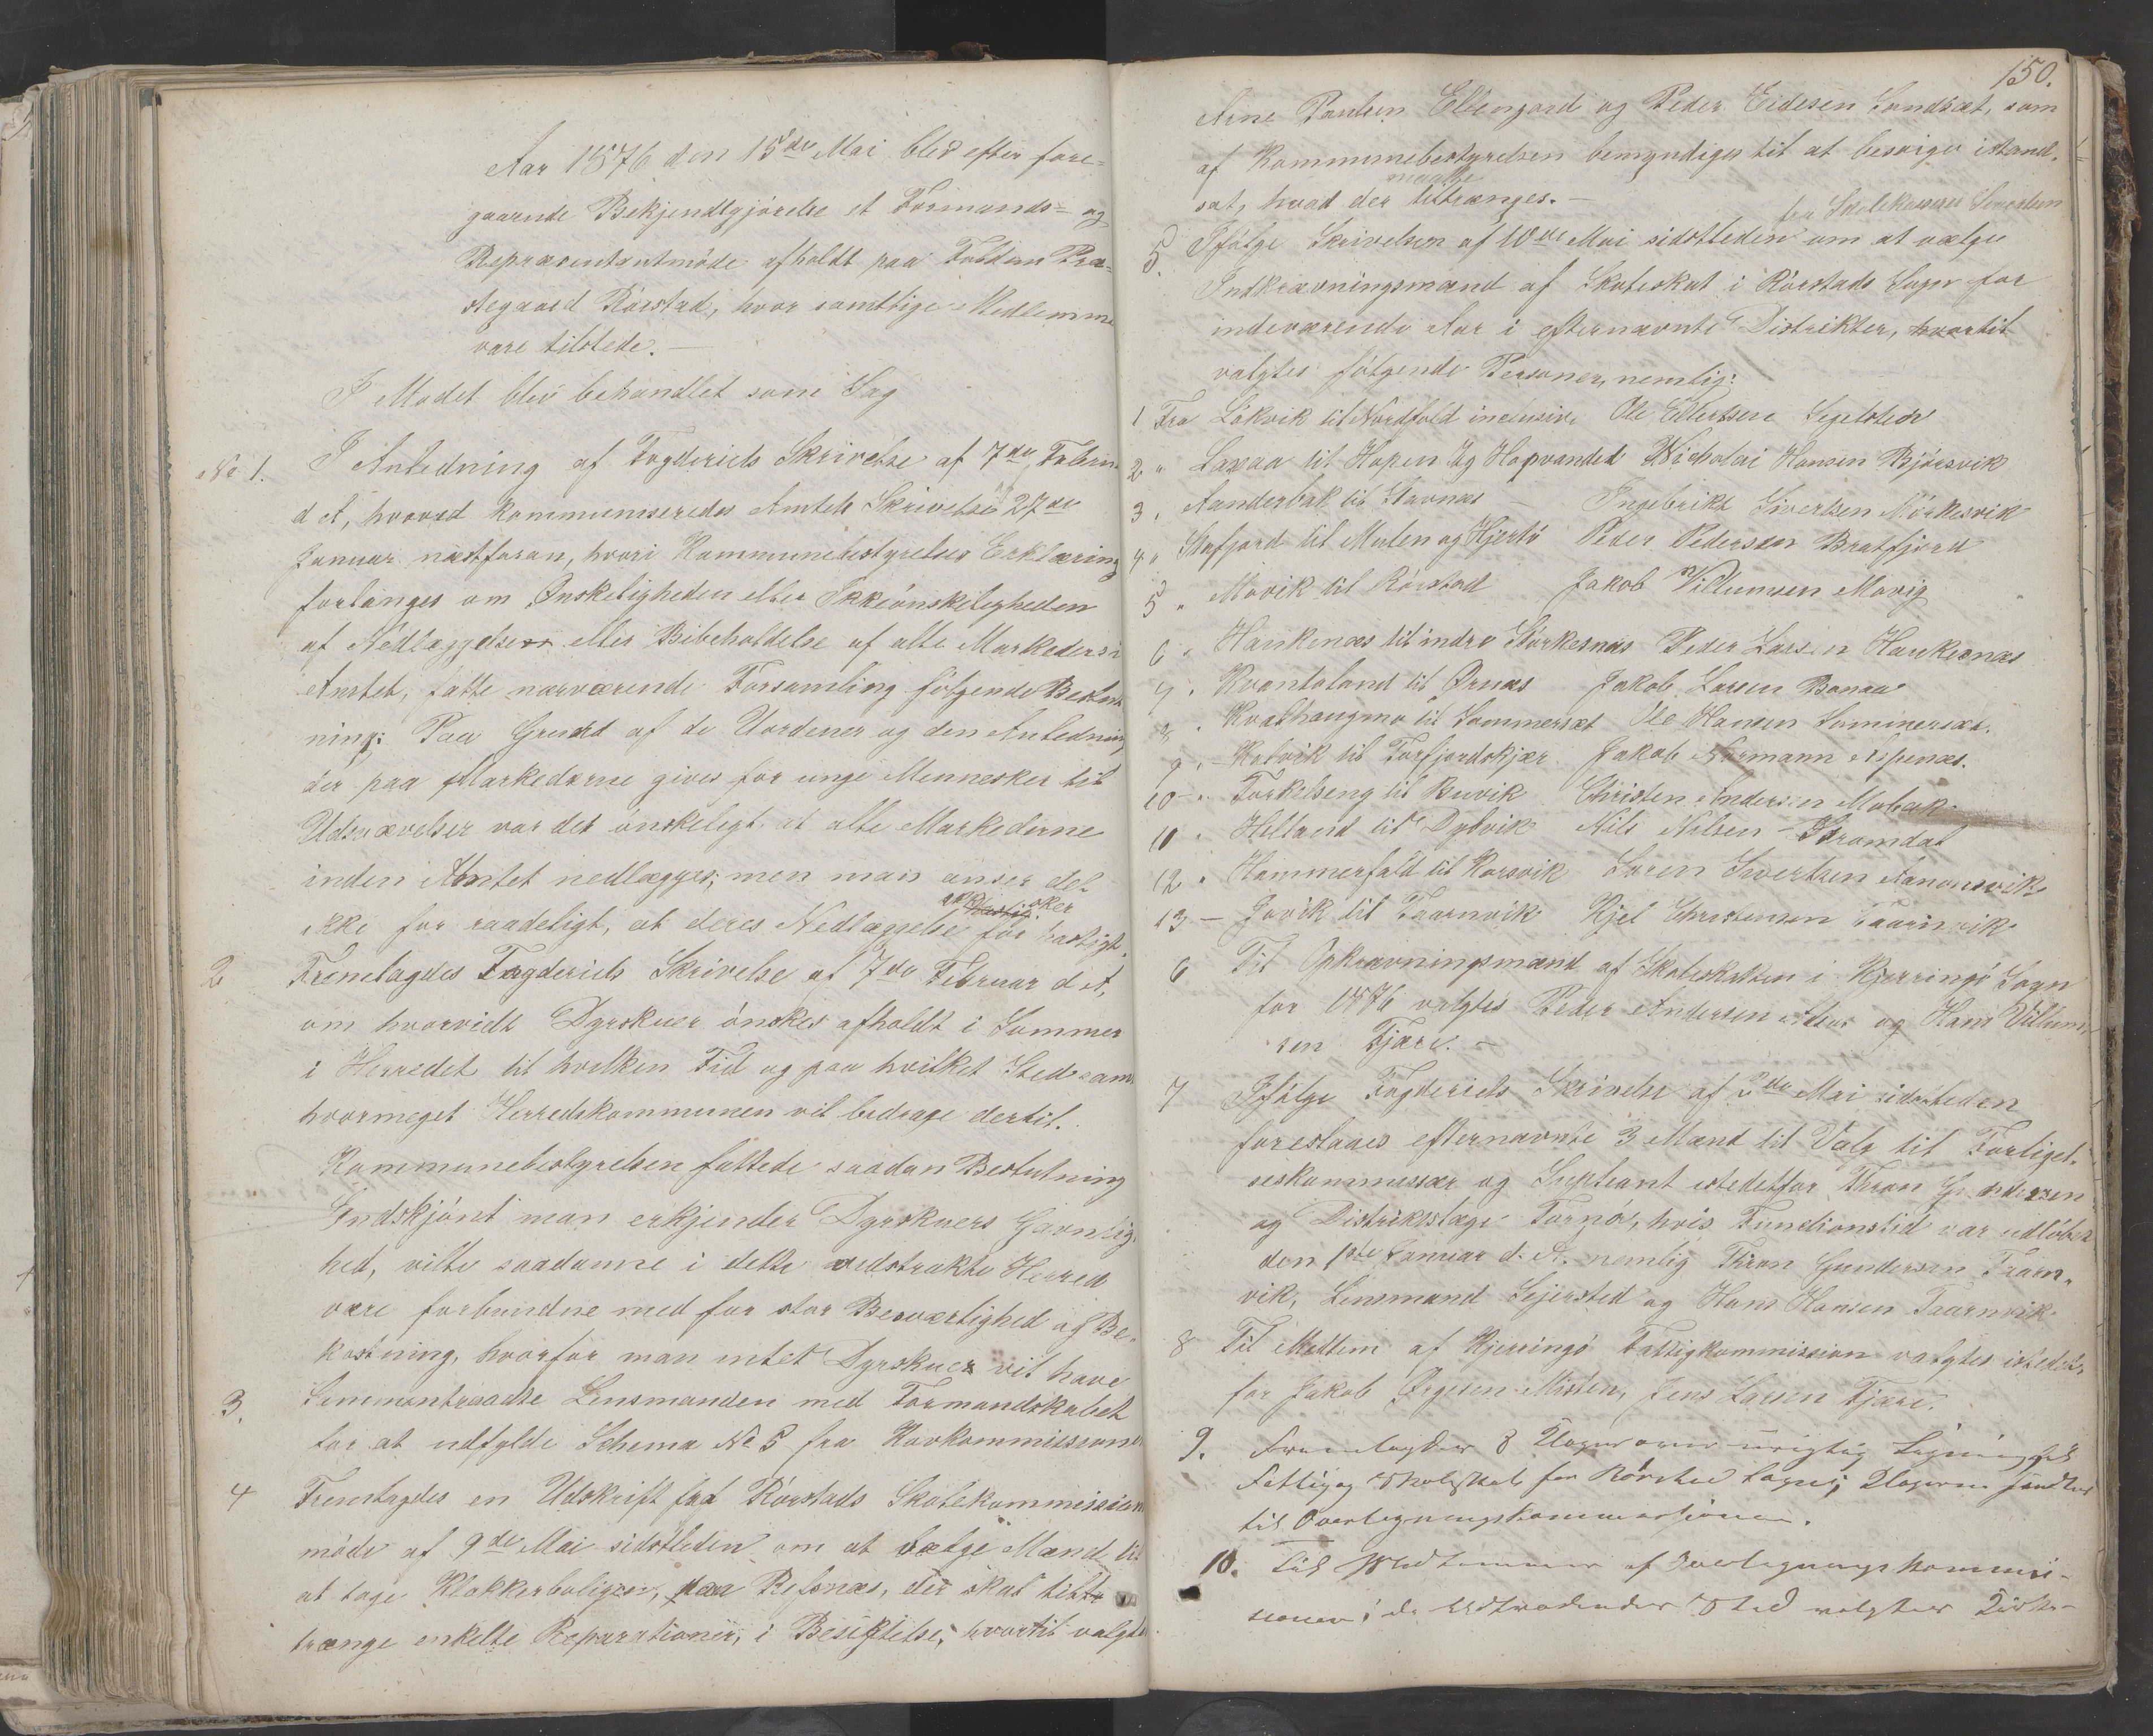 Aar 1876 den 15de Mai blev efter fore=
gaaende Bekjendtgjörelse et Formands= og
Repræsentantmöde afholdt paa Folden Præ=
stegaard Rörstad, hvor samtlige Medlemme
vare tilstede. —
I Mödet blev behandlet som Sag
No 1. I Anledning af Fogderiets Skrivelse af 7de Februa
d A, hvorved kommuniseredes Amtets Skrivelse 27de
Januar næstforan, hvori Kommunebestyrelses Erklæring
forlanges om Önskeligheden eller Ikkeönskeligheden
af Nedlæggelse eller Bibeholdelse af alle Markeder i
Amtet, fatte nærværende Forsamling fölgende Beslut
ning: Paa Grund af de Uordener og den Anledning
der paa Markederne gives for unge Mennesker til
Udsvævelser var det önskeligt at alle Markederne
inden Amtet nedlægges; men man anser det
ikke for raadeligt, at deres Nedlæggelse sker for hastigt.
2 Fremlagdes Fogderiets Skrivelse af 7de Februar d A,
om hvorvidt Dyrskuer önskes afholdt i Sommer
i Herredet til hvilken Tid og paa hvilket Sted samt
hvormeget Herredskommunen vil bedrage dertil.
Kommunebestyrelsen fattede saadan Beslutning
Endskjönt man erkjender Dyrskuers Gavnlig
hed, ville saadanne i dette vidstrakte Herred
være forbundne med for stor Besværlighed og Be=
kostning, hvorfor man intet Dyrskuer vil have
3. Sammentraadte Lensmanden med Formandskabet
for at udfylde Schema No 5 fra Kommissionen
4 Fremlagdes en Udskrift fra Rörstads Skolekommission
möde af 9de Mai sidstleden om at vælge Mænd til
at tage Klokkerboligen, paa Refsnæs, der skal
trænge enkelte Reparationer, i Besigtelse, hvortil valgte
150.
Arne Paulsen Ellengaard og Peder Eidesen Sandsæt, som
af Kommunebestyrelsen bemyndiges til at besörge istand=
sat, hvad der maatte tiltrænges. —
5. Ifölge Skrivelse af 10de Mai sidstleden fra Skolekasserer Sivertsen om at vælge
Indkrævningsmænd af Skoleskat i Rörstads Sogn for
indeværende Aar i efternævnte Distrikter, hvortil
valgtes fölgende Personer, nemlig:
1 Fra Lökvik til Nordfold inclusive Ole Ellertsen Segelsteen
2 " Laxaa til Hopen og Hopvandet Nicholai Hansen Björsvik
3 " Aanderbak til Stavnæs — Ingebrikt Sivertsen Mörkesvik
4 " Stofjord til Mulen og Hjertö Peder Pedersen Bratfjord
5 " Movik til Rörstad Jakob Villumsen Movig
6 " Haukenæs til indre Storkesnæs Peder Larsen Haukenæs
7 " Kvantoland til Ørnæs Jakob Larsen Bonaa
8 " Kvalhaugmo til Sommerset Ole Hansen Sommerset.
9 " Kalvik til Torfjordskjær Jakob Normann Aspenæs.
10 " Torkelseng til Buvik Christen Andersen Mobak
11 " Helland til Dybvik Nils Nilsen Stromdal
12 " Hammerfald til Korsvik Sören Sivertsen Aanonsvik
13 — Jovik til Taarnvik Kjel Christensen Taarnvik
6 Til Opkrævningsmænd af Skoleskatten i Kjerringö Sogn
for 1876 valgtes Peder Andersen og Hans Villum=
sen Fjære. —
7 Ifölge Fogderiets Skrivelse af 3de Mai sidstleden
foreslaaes efternævnte 3 Mænd til Valg til Forligel=
seskommissær og Supleant istedetfor Thron Gundersen
og Distriktslæge Tornöe, hvis Functionstid var udlöbet
den 1ste Januar d. A. nemlig Thron Gundersen Taarn=
vik, Lensmand Sejersted og Hans Hansen Taarnvik.
8 Til Medlem af Kjerringö Fattigkommission valgtes istedet=
for Jakob Örgesen Misten, Jens Larsen Fjære.
9. Fremlagdes 8 Klager over urigtig Ligning af
Fattig og Skoleskat for Rörstad Sogn; Klagerne sendtes
til Overlegningskommissionen.
10. Til Medlemmer af Overlegningskommis=
sionen i de Udtrædendes Sted valgtes